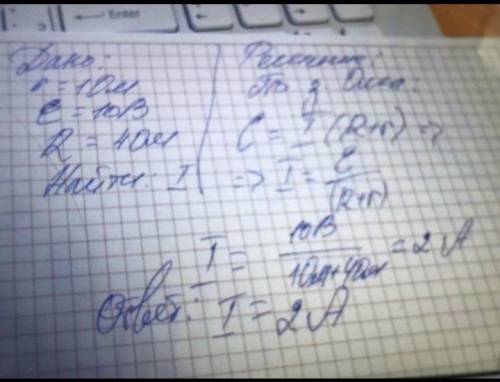 Enter
Дано:
r = 1Ом
ε = 10В
R = 4Ом
Найти: I
Решение:
По з. Ома:
ε = I (R+r) =>
=> I = ε/(R+r)
I = 10В/1Ом+4Ом = 2 А
Ответ: I = 2А